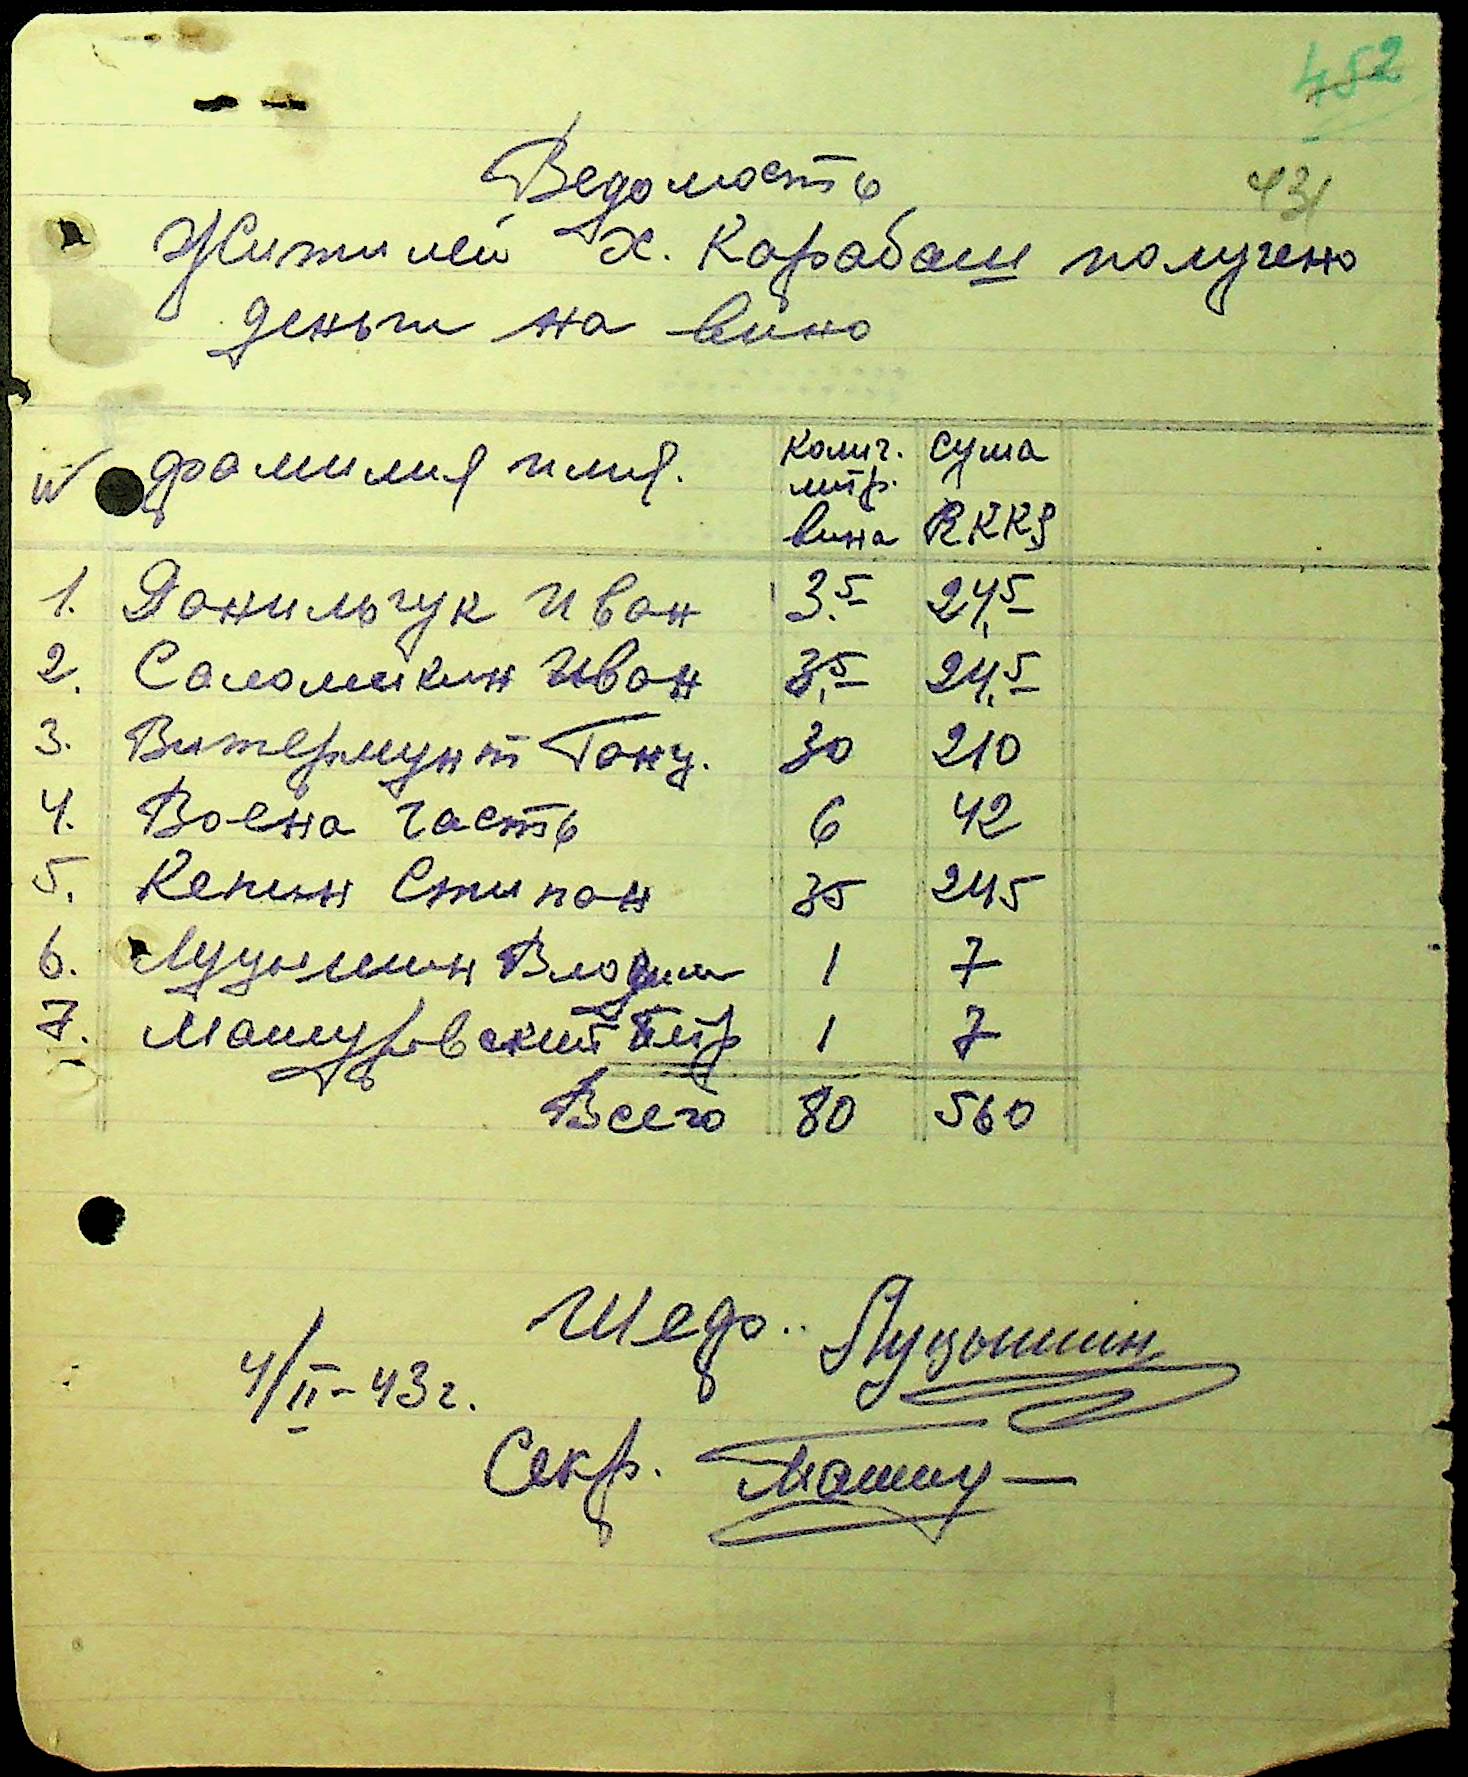 452
431
Ведомость
Жителей х. Карабаш получено
деньги на вино
№ фамилия имя. колич. литр. вина сума RKKS
1. Данильчук Иван 3.5 24,5
2. Соломикин Иван 3,5 24,5
3. Витермунт Ганц. 30 210
4. Воена часть 6 42
5. Кепин Стипан 35 245
6. Луцышин Влодим 1 7
7. Машуровский Птр 1 7
Всего 80 560
Шеф.. Луцышин
4/II-43г.
Секр. Машу